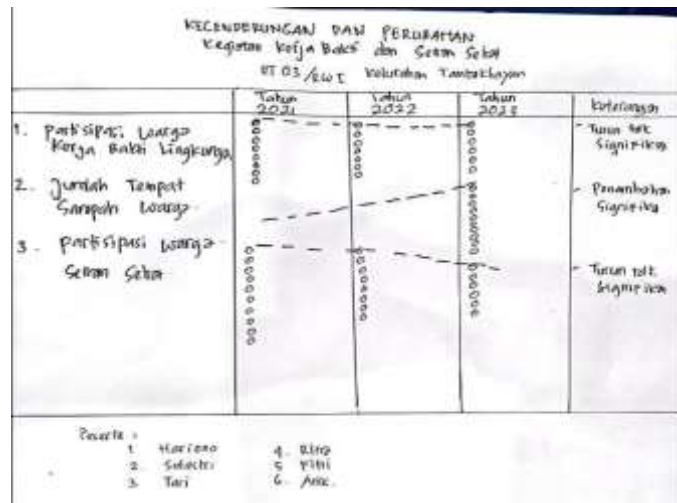 KECENDERUNGAN DAN PERUBAHAN
Kegiatan Kerja Bakti dan Senam Sehat
RT 03/RW I Kelurahan
Tahun 2021
Tahun 2022
Tahun 2023
Keterangan
1. Partisipasi Warga
Kerja Bakti Lingkungan
Turun tdk
Signifikan
2. Jumlah Tempat
Sampah Warga
Penambahan
Signifikan
3. Partisipasi Warga
Senam Sehat
Turun tdk
Signifikan
Peserta :
1. Hariono
2.
3. Tari
4. Rina
5. Fitri
6.